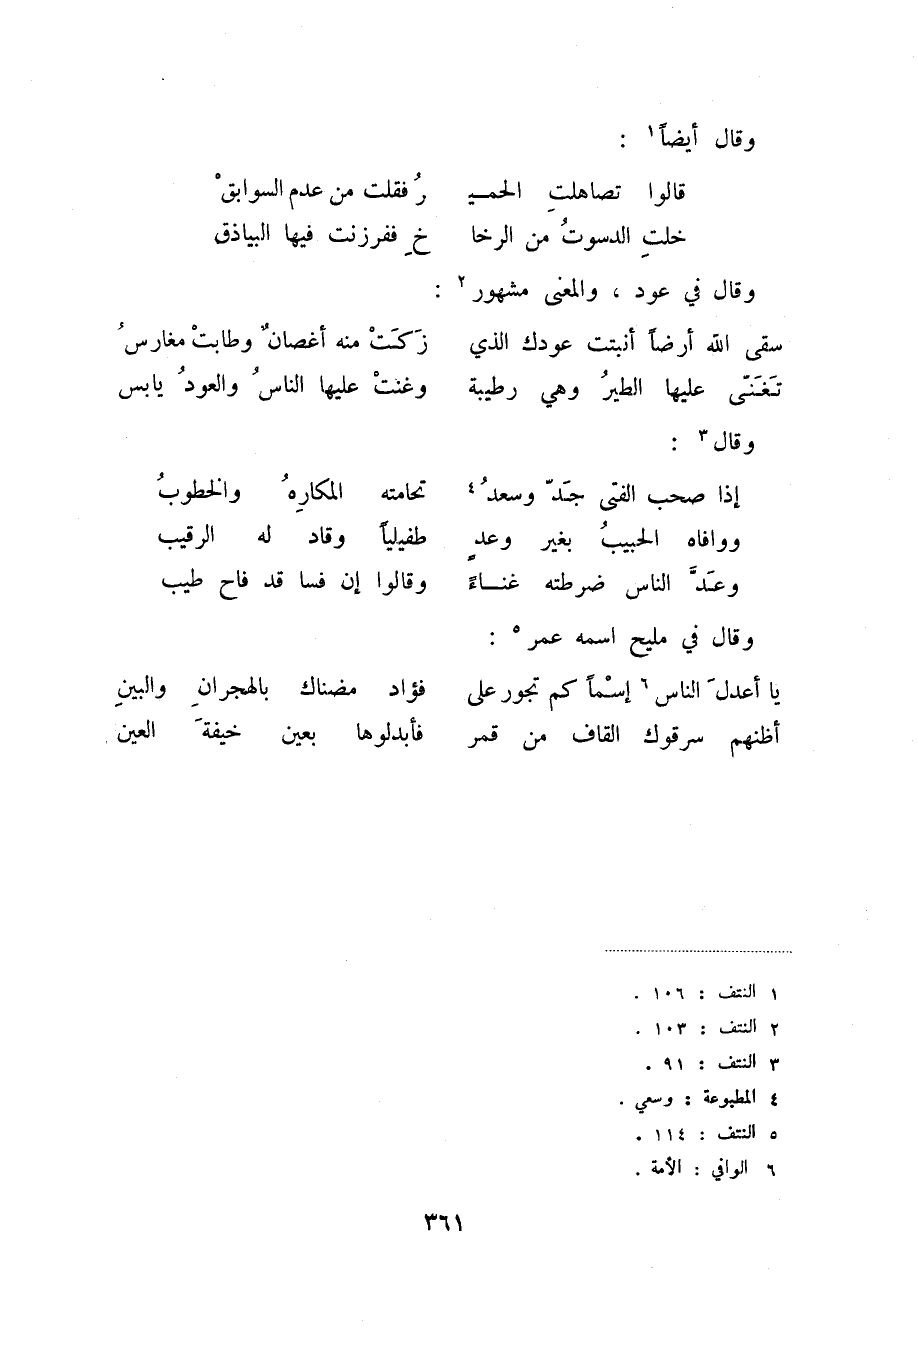 وقال أيضاً١ :
قالوا تصاهلتِ الحمـيـ رُ فقلت من عدم السوابقْ
خلتِ الدسوتُ من الرخا خِ ففرزنت فيها البياذق
وقال في عود ، والمعنى مشهور٢ :
سقى الله أرضاً أنبتت عودك الذي زَكَتْ منه أغصانٌ وطابتْ مغارسُ
تَغَنّى عليها الطيرُ وهي رطيبة وغنتْ عليها الناسُ والعودُ يابس
وقال٣ :
إذا صحب الفتى جَدّ وسعدُ٤ تحامته المكارِهُ والخطوبُ
ووافاه الحبيبُ بغير وعدٍ طفيلياً وقاد له الرقيب
وعَدَّ الناس ضرطته غنـاءً وقالوا إن فسا قد فاح طيب
وقال في مليح اسمه عمر٥ :
يا أعدلَ الناس٦ إسْماً كم تجور على فؤاد مضناك بالهجرانِ والبينِ
أظنهم سرقوك القاف من قمر فأبدلوها بعين خيفةَ العين
١ النتف : ١٠٦ .
٢ النتف : ١٠٣ .
٣ النتف : ٩١ .
٤ المطبوعة : وسعي .
٥ النتف : ١١٤ .
٦ الوافي : الأمة .
٣٦١